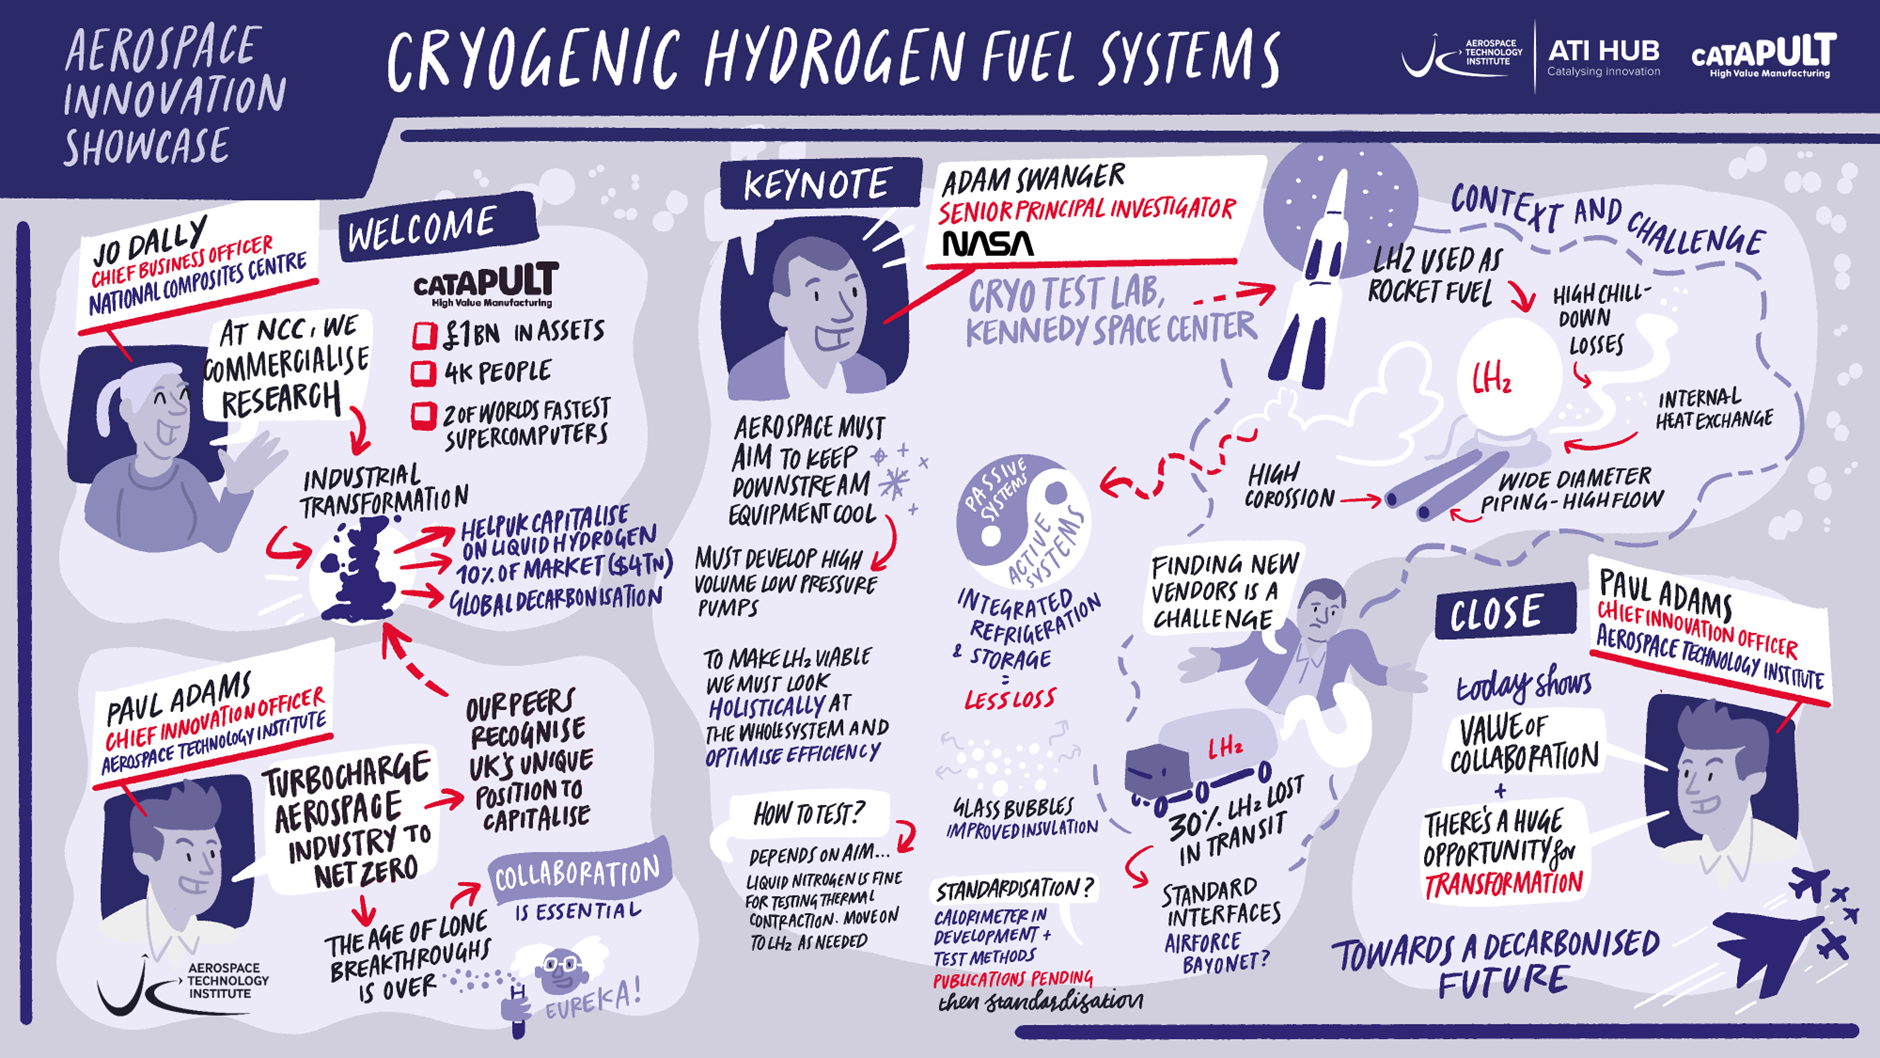 AEROSPACE
INNOVATION
SHOWCASE
CRYOGENIC HYDROGEN FUEL SYSTEMS
AEROSPACE
TECHNOLOGY
INSTITUTE
ATI HUB
Catalysing Innovation
CATAPULT
High Value Manufacturing
JO DALLY
CHIEF BUSINESS OFFICER
NATIONAL COMPOSITES CENTRE
WELCOME
AT NCC, WE
COMMERCIALISE
RESEARCH
CATAPULT
High Value Manufacturing
£1BN IN ASSETS
4K PEOPLE
2 OF WORLDS FASTEST
SUPERCOMPUTERS
INDUSTRIAL
TRANSFORMATION
HELP UK CAPITALISE
ON LIQUID HYDROGEN
10% OF MARKET ($4TN)
GLOBAL DECARBONISATION
PAUL ADAMS
CHIEF INNOVATION OFFICER
AEROSPACE TECHNOLOGY INSTITUTE
TURBOCHARGE
AEROSPACE
INDUSTRY TO
NET ZERO
OUR PEERS
RECOGNISE
UK'S UNIQUE
POSITION TO
CAPITALISE
THE AGE OF LONE
BREAKTHROUGHS
IS OVER
COLLABORATION
IS ESSENTIAL
EUREKA!
AEROSPACE
TECHNOLOGY
INSTITUTE
KEYNOTE
ADAM SWANGER
SENIOR PRINCIPAL INVESTIGATOR
NASA
CRYO TEST LAB,
KENNEDY SPACE CENTER
CONTEXT AND CHALLENGE
LH2 USED AS
ROCKET FUEL
LH2
HIGH CHILL-
DOWN
LOSSES
INTERNAL
HEAT EXCHANGE
WIDE DIAMETER
PIPING - HIGH FLOW
HIGH
COROSSION
AEROSPACE MUST
AIM TO KEEP
DOWNSTREAM
EQUIPMENT COOL
MUST DEVELOP HIGH
VOLUME LOW PRESSURE
PUMPS
TO MAKE LH2 VIABLE
WE MUST LOOK
HOLISTICALLY AT
THE WHOLE SYSTEM AND
OPTIMISE EFFICIENCY
HOW TO TEST?
DEPENDS ON AIM...
LIQUID NITROGEN IS FINE
FOR TESTING THERMAL
CONTRACTION. MOVE ON
TO LH2 AS NEEDED
PASSIVE
SYSTEMS
ACTIVE
SYSTEMS
INTEGRATED
REFRIGERATION
& STORAGE
=
LESS LOSS
GLASS BUBBLES
IMPROVED INSULATION
STANDARDISATION?
CALORIMETER IN
DEVELOPMENT +
TEST METHODS
PUBLICATIONS PENDING
then standardisation
FINDING NEW
VENDORS IS A
CHALLENGE
LH2
30% LH2 LOST
IN TRANSIT
STANDARD
INTERFACES
AIRFORCE
BAYONET?
CLOSE
PAUL ADAMS
CHIEF INNOVATION OFFICER
AEROSPACE TECHNOLOGY INSTITUTE
today shows
VALUE OF
COLLABORATION
+
THERE'S A HUGE
OPPORTUNITY for
TRANSFORMATION
TOWARDS A DECARBONISED
FUTURE